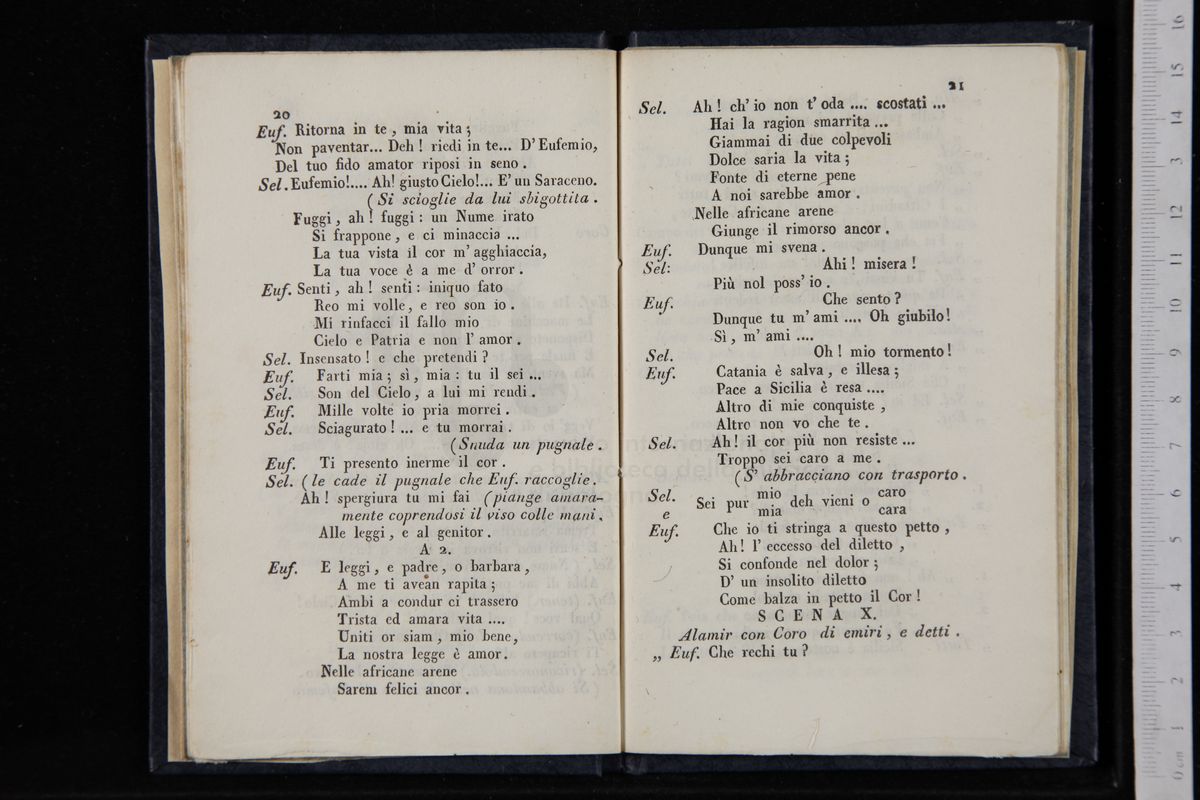 20
Euf. Ritorna in te , mia vita ;
Non paventar... Deh ! riedi in te... D' Eufemio,
Del tuo fido amator riposi in seno .
Sel. Eufemio!.... Ah! giusto Cielo!... E' un Saraceno.
( Si scioglie da lui sbigottita .
Fuggi , ah ! fuggi : un Nume irato
Si frappone , e ci minaccia ...
La tua vista il cor m' agghiaccia,
La tua voce è a me d' orror .
Euf. Senti , ah ! senti : iniquo fato
Reo mi volle, e reo son io .
Mi rinfacci il fallo mio
Cielo e Patria e non l' amor .
Sel. Insensato ! e che pretendi ?
Euf. Farti mia ; sì , mia : tu il sei ...
Sel. Son del Cielo , a lui mi rendi .
Euf. Mille volte io pria morrei .
Sel. Sciagurato ! ... e tu morrai .
( Snuda un pugnale .
Euf. Ti presento inerme il cor .
Sel. ( le cade il pugnale che Euf. raccoglie.
Ah ! spergiura tu mi fai (piange amara-
mente coprendosi il viso colle mani .
Alle leggi , e al genitor .
A 2.
Euf. E leggi , e padre, o barbara ,
A me ti avean rapita ;
Ambi a condur ci trassero
Trista ed amara vita ....
Uniti or siam , mio bene,
La nostra legge è amor.
Nelle africane arene
Sarem felici ancor .
21
Sel. Ah ! ch' io non t' oda .... scostati ...
Hai la ragion smarrita ...
Giammai di due colpevoli
Dolce saria la vita ;
Fonte di eterne pene
A noi sarebbe amor .
Nelle africane arene
Giunge il rimorso ancor .
Euf. Dunque mi svena .
Sel: Ahi ! misera !
Più nol poss' io .
Euf. Che sento ?
Dunque tu m' ami .... Oh giubilo!
Sì , m' ami ....
Sel. Oh ! mio tormento !
Euf. Catania è salva , e illesa ;
Pace a Sicilia è resa ....
Altro di mie conquiste ,
Altro non vo che te .
Sel. Ah ! il cor più non resiste ...
Troppo sei caro a me .
( S' abbracciano con trasporto .
Sel. mio caro
e Sei pur deh vieni o
mia cara
Euf. Che io ti stringa a questo petto ,
Ah! l' eccesso del diletto ,
Si confonde nel dolor ;
D' un insolito diletto
Come balza in petto il Cor !
SCENA X.
Alamir con Coro di emiri , e detti .
„ Euf. Che rechi tu ?